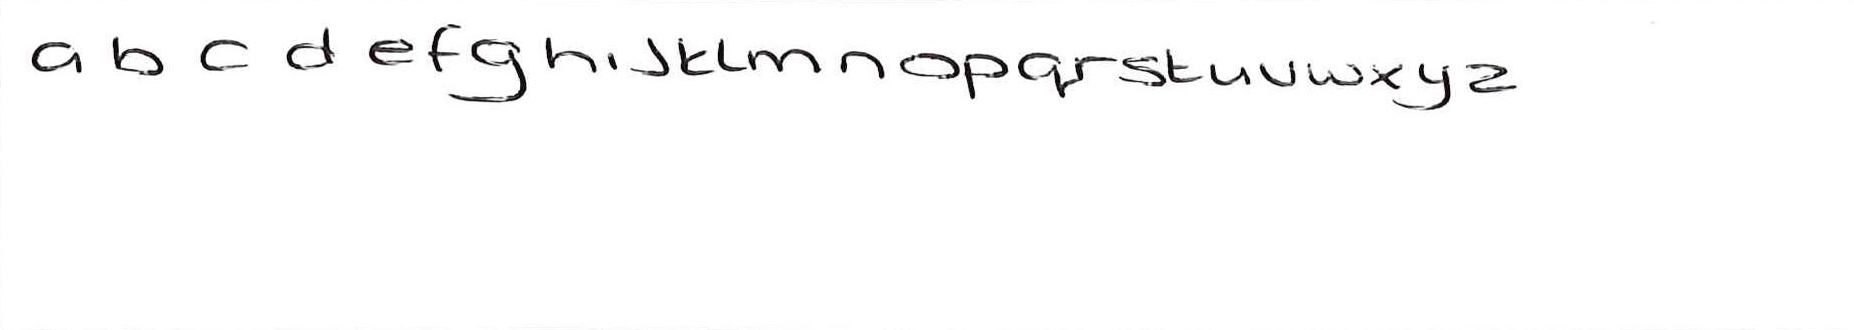 a b c d efghijklmnopqrstuvwxyz